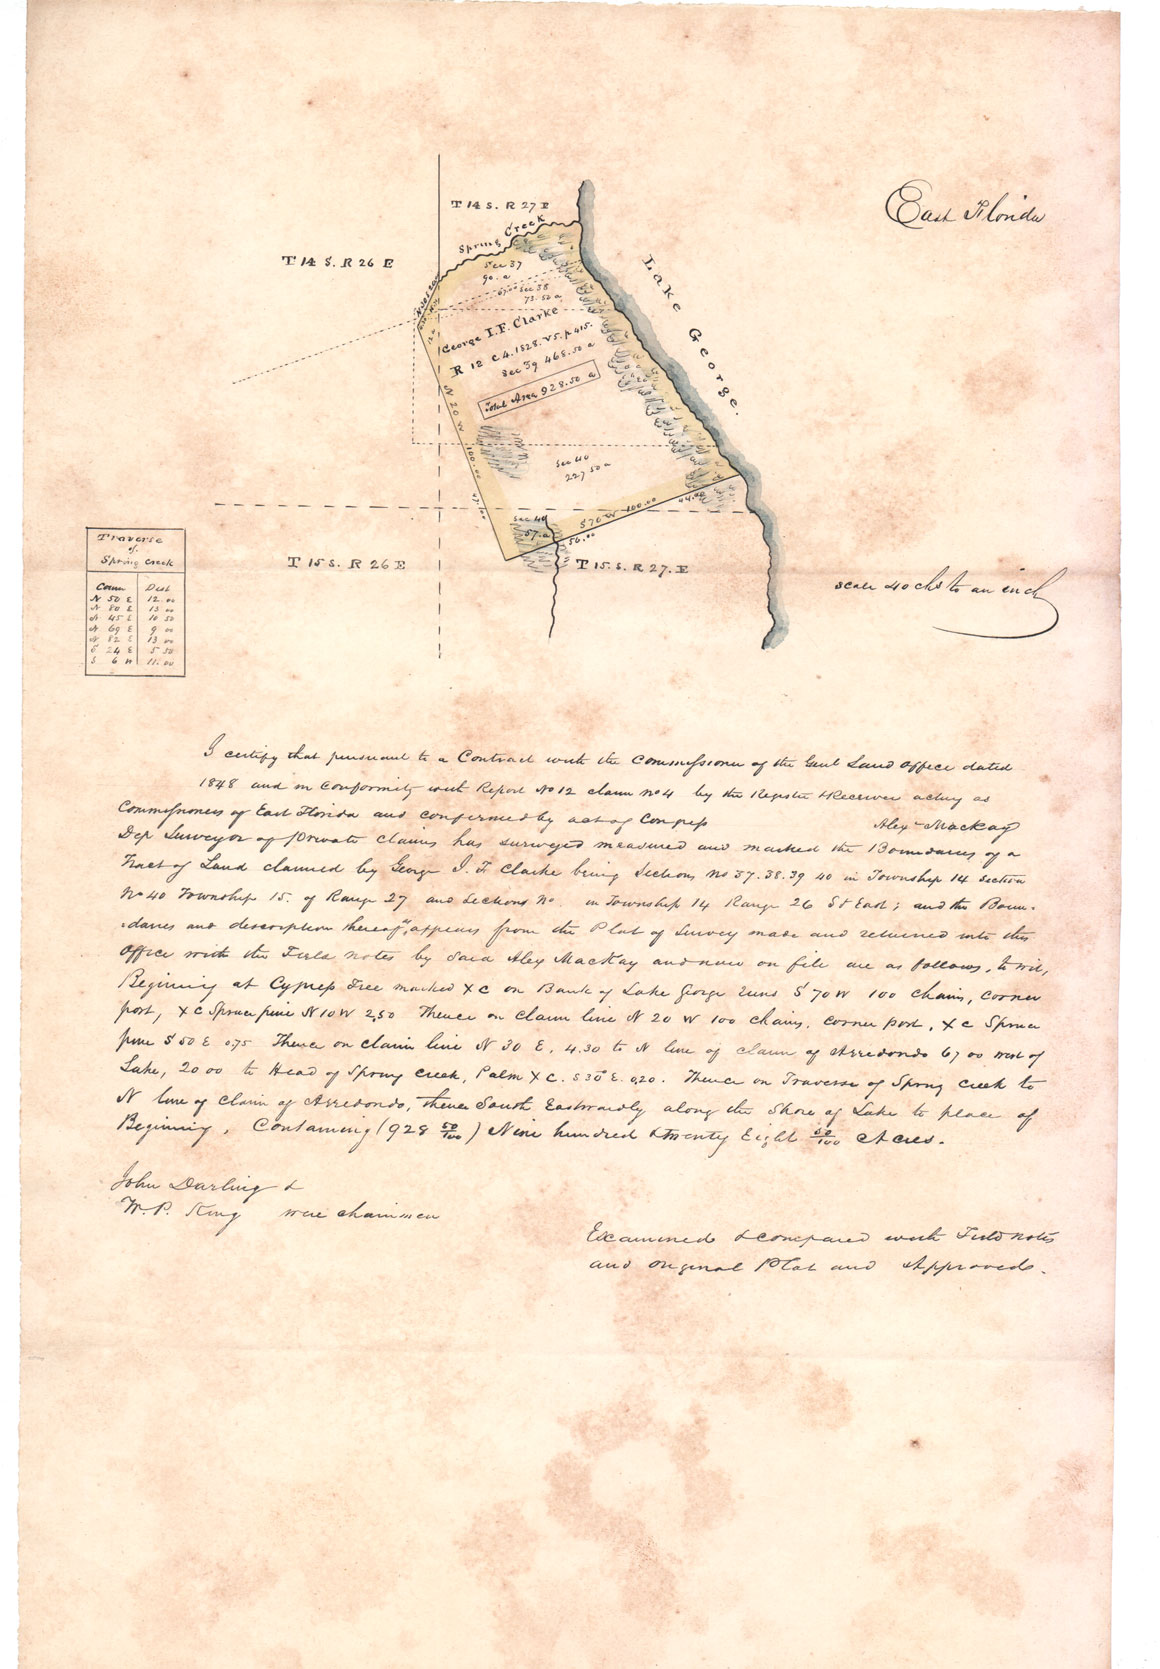 East Florida
T 14 S. R 27 E
T 14 S. R 26 E
Spring Creek
Lake George.
Sec 37
90. a
67.00 Sec 38
73.50 a
George I. F. Clarke
R 12 C 4. 1828. V 5. p 415.
Sec 39 468.50 a
Total Area 928.50 a
N 20 W 100.00
Sec 40
227 50 a
S 70 W 100.00
44.00
56.00
Sec 40
57. a
T 15 S. R 26 E
T 15. S. R 27. E
scale 40 chs to an inch
Traverse
of.
Spring Creek
Cours Dist
N 50 E 12.00
N 80 E 13 00
N 45 E 10 50
N 69 E 9 00
N 82 E 13 00
S 24 E 5 50
S 6 W 11.00
I certify that pursuant to a Contract with the Commissioner of the Genl Land Office dated
1848 and in Conformity with Report No 12 claim No 4 by the Register & Receiver acting as
Commissioners of East Florida and confirmed by act of Congress Alexr Mackay
Dep Surveyor of private claims has surveyed measured and marked the Boundaries of a
Tract of Land claimed by George I. F Clarke being Sections No 37. 38. 39 40 in Township 14 Section
No 40 Township 15. of Range 27 and Sections No. in Township 14 Range 26 S & East; and the Boun-
-daries and description hereof, as appears from the Plat of Survey made and returned into this
Office with the Field notes by Said Alex MacKay and now on file are as follows, to wit,
Begining at Cypress Tree marked X C on Bank of Lake George runs S 70 W 100 chains, corner
post, X C Spruce pine N 10 W 2,50 Thence on Claim line N 20 W 100 chains. corner post, X C Spruce
pine S 50 E 0,75 Thence on Claim line N 30 E. 4.30 to N line of claim of Arredondo 67 00 west of
Lake, 20 00 to Head of Spring Creek, Palm X C. S 30 E. 0,20. Thence on Traverse of Spring Creek to
N line of Claim of Arredondo, thence South Eastwardly along the Shore of Lake to place of
Begining, Containing (928 50/100) Nine hundred & twenty Eight 50/100 Acres.
John Darling &
W. P. King were chainmen
Examined & compared with Field notes
and original Plat and Approved.